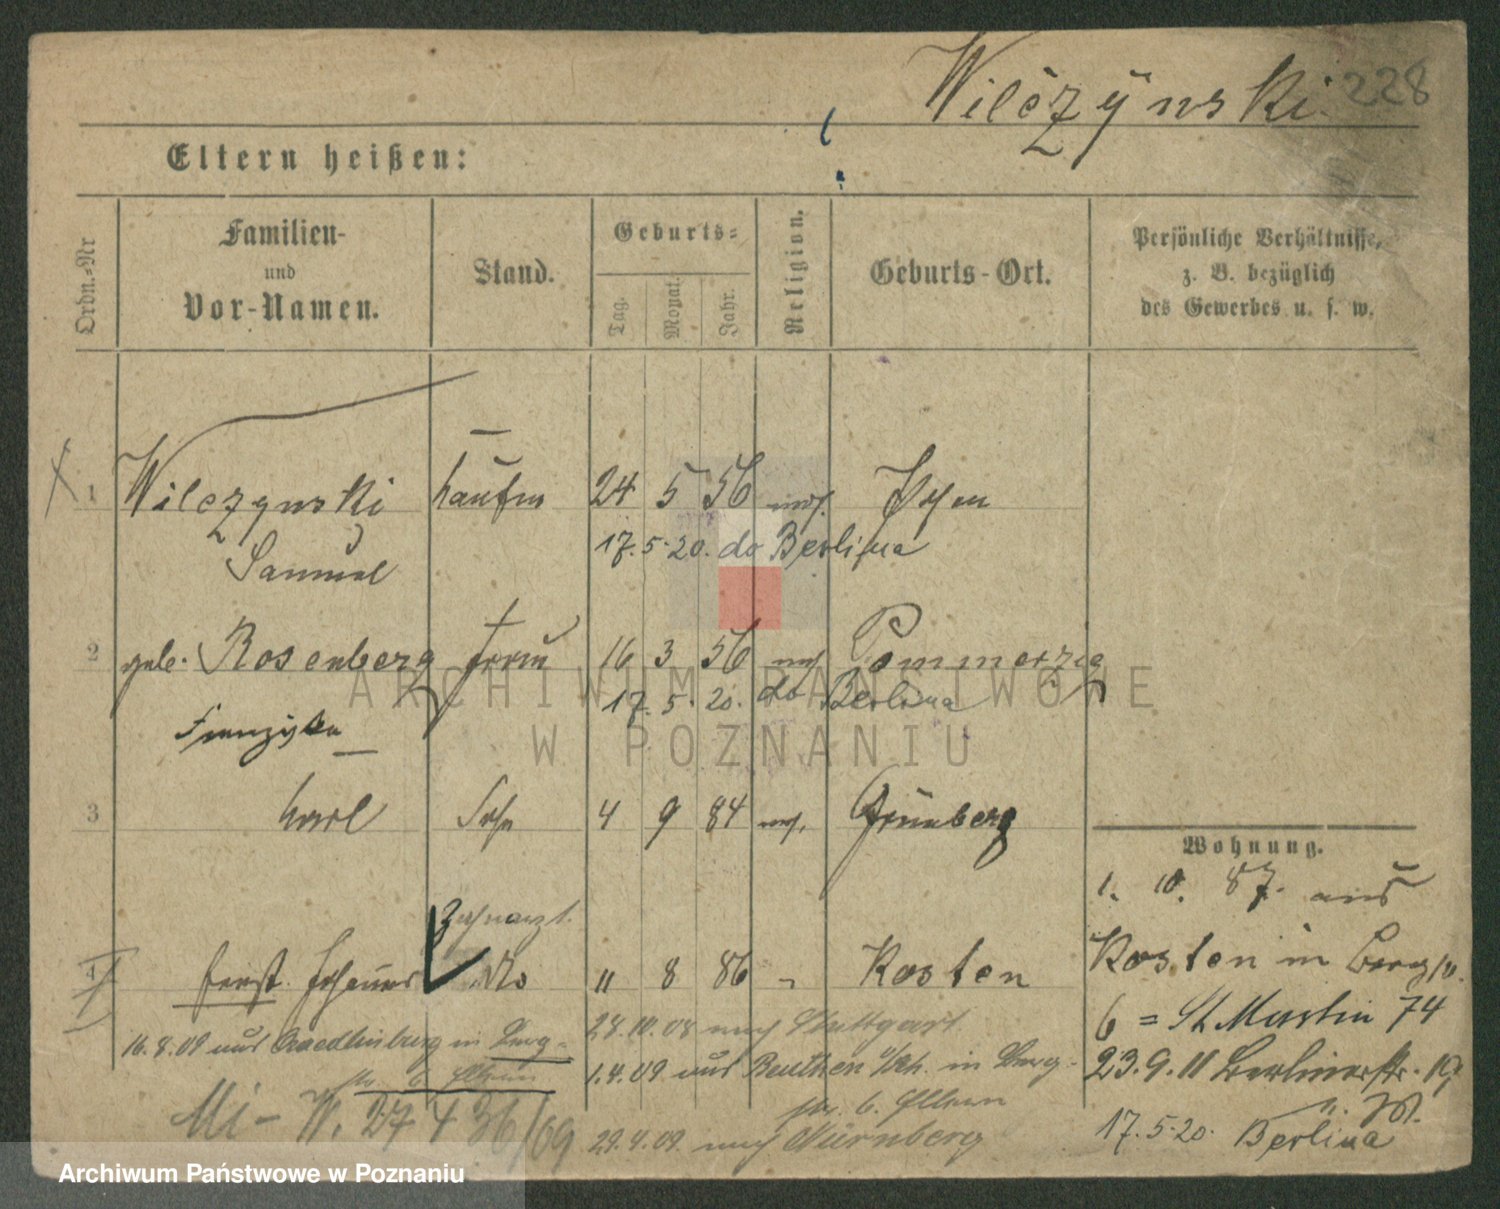 Wilczynski. 228
Eltern heißen:
Ordn.-Nr
Familien-
und
Vor-Namen.
Stand.
Geburts-
Tag.
Monat.
Jahr.
Religion.
Geburts-Ort.
Persönliche Verhältnisse,
z. B. bezüglich
des Gewerbes u. s. w.
1 Wilczynski Kaufm 24 5 56 mos. Posen
Samuel 17.5.20. do Berlin
2 geb. Rosenberg Frau 16 3 56 mos Pommerzig
17.5.20. do Berlin
Franziska
3 Karl Sohn 4 9 84 mos. Grünberg
Wohnung.
1. 10. 87. aus
Zahnarzt.
4 Ernst Johannes 11 8 86 " Kosten
Kosten in Berg
6 = St Martin 74
16.8.09 aus Quedlinburg in Berg-
28.10.08 nach Stuttgart
1.4.09 aus Beuthen in Berg-
23.9.11 Berlinerstr. 19
str. 6. Eltern
str. 6. Eltern
Mi - W. 27 4 36/09
29.4.09. nach Nürnberg
17.5.20. Berlin
ARCHIWUM PAŃSTWOWE
W POZNANIU
Archiwum Państwowe w Poznaniu